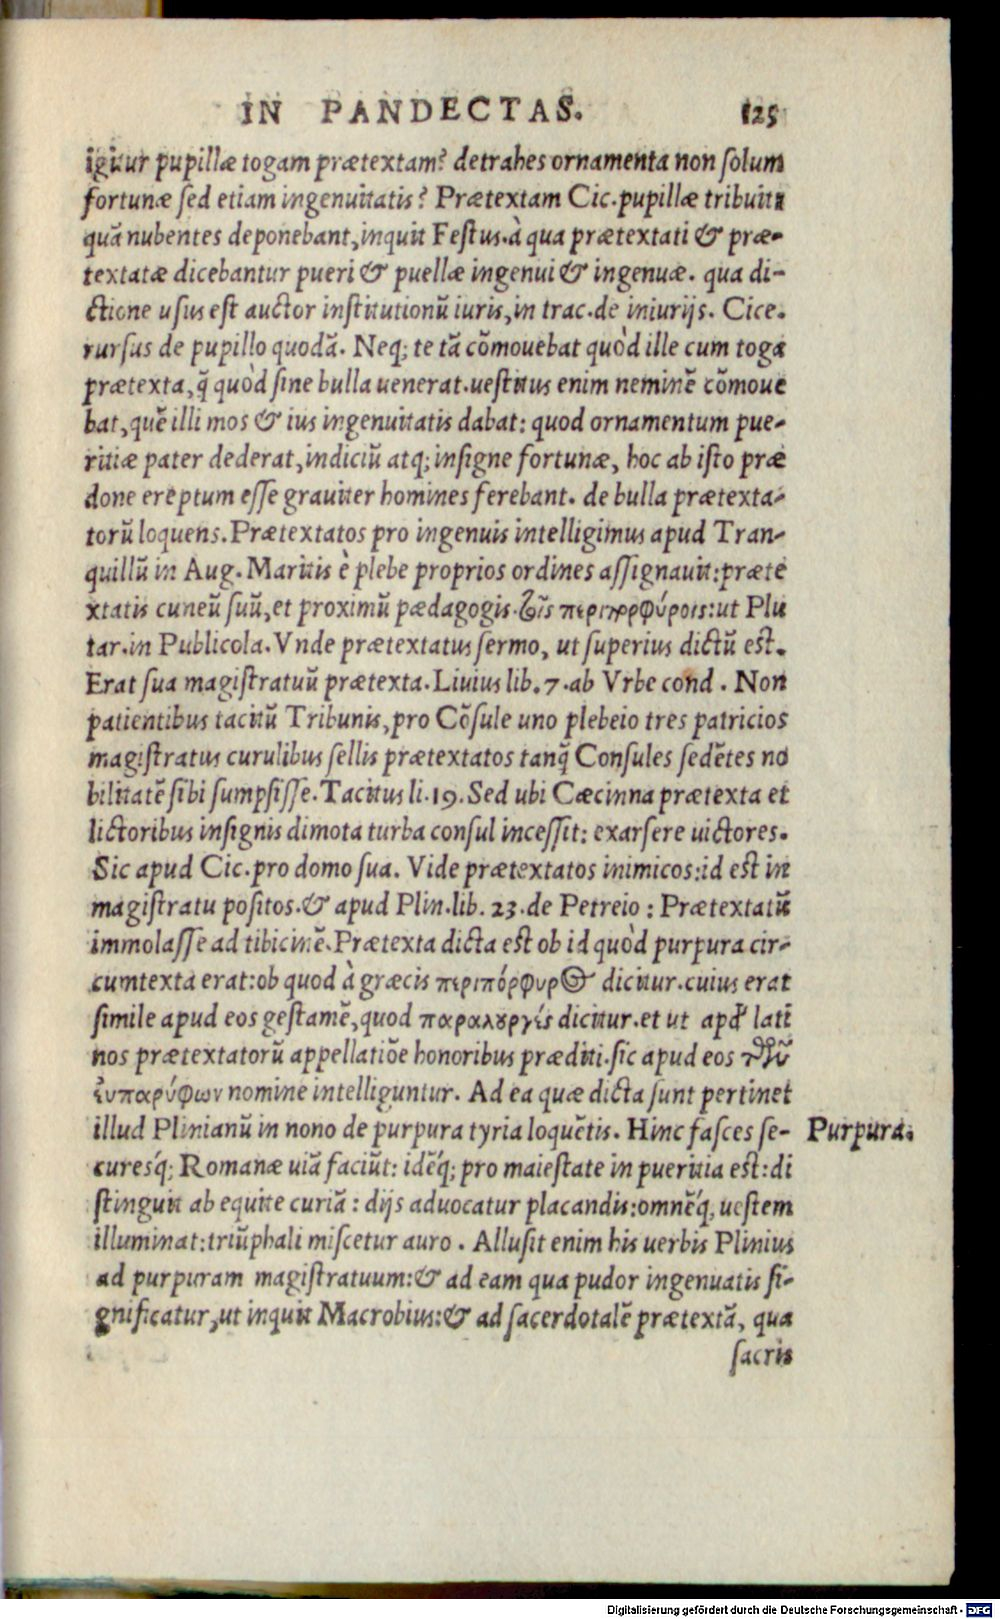 IN PANDECTAS. 125
igitur pupillæ togam prætextam? detrahes ornamenta non solum
fortunæ sed etiam ingenuitatis? Prætextam Cic. pupillæ tribuit:
quã nubentes deponebant, inquit Festus. à qua prætextati & præ-
textatæ dicebantur pueri & puellæ ingenui & ingenuæ. qua di-
ctione usus est auctor institutionũ iuris, in trac. de iniurijs. Cice.
rursus de pupillo quodã. Neq; te tã cõmouebat quòd ille cum toga
prætexta, q̃ quòd sine bulla uenerat. uestitus enim neminẽ cõmoue
bat, quẽ illi mos & ius ingenuitatis dabat: quod ornamentum pue-
ritiæ pater dederat, indiciũ atq; insigne fortunæ, hoc ab isto præ
done ereptum esse grauiter homines ferebant. de bulla prætexta-
torũ loquens. Prætextatos pro ingenuis intelligimus apud Tran-
quillũ in Aug. Maritis è plebe proprios ordines assignauit: præte
xtatis cuneũ suũ, et proximũ pædagogis. τοῖς περιπορφύροις: ut Plu
tar. in Publicola. Vnde prætextatus sermo, ut superius dictũ est.
Erat sua magistratuũ prætexta. Liuius lib. 7. ab Vrbe cond. Non
patientibus tacitũ Tribunis, pro Cõsule uno plebeio tres patricios
magistratus curulibus sellis prætextatos tanq̃ Consules sedẽtes no
bilitatẽ sibi sumpsisse. Tacitus li. 19. Sed ubi Cæcinna prætexta et
lictoribus insignis dimota turba consul incessit: exarsere uictores.
Sic apud Cic. pro domo sua. Vide prætextatos inimicos: id est in
magistratu positos. & apud Plin. lib. 23. de Petreio: Prætextatũ
immolasse ad tibicinẽ. Prætexta dicta est ob id quòd purpura cir-
cumtexta erat: ob quod à græcis περιπόρφυρος dicitur. cuius erat
simile apud eos gestamẽ, quod παραλουργίς dicitur. et ut apđ lati
nos prætextatorũ appellatiõe honoribus præditi. sic apud eos τῶν
ἐυπαρύφων nomine intelliguntur. Ad ea quæ dicta sunt pertinet
illud Plinianũ in nono de purpura tyria loquẽtis. Hinc fasces se- Purpura.
curesq́; Romanæ uiã faciũt: idẽq́; pro maiestate in pueritia est: di
stinguit ab equite curiã: dijs aduocatur placandis: omnẽq́; uestem
illuminat: triũphali miscetur auro. Allusit enim his uerbis Plinius
ad purpuram magistratuum: & ad eam qua pudor ingenuatis si-
gnificatur, ut inquit Macrobius: & ad sacerdotalẽ prætextã, qua
sacris
Digitalisierung gefördert durch die Deutsche Forschungsgemeinschaft - DFG